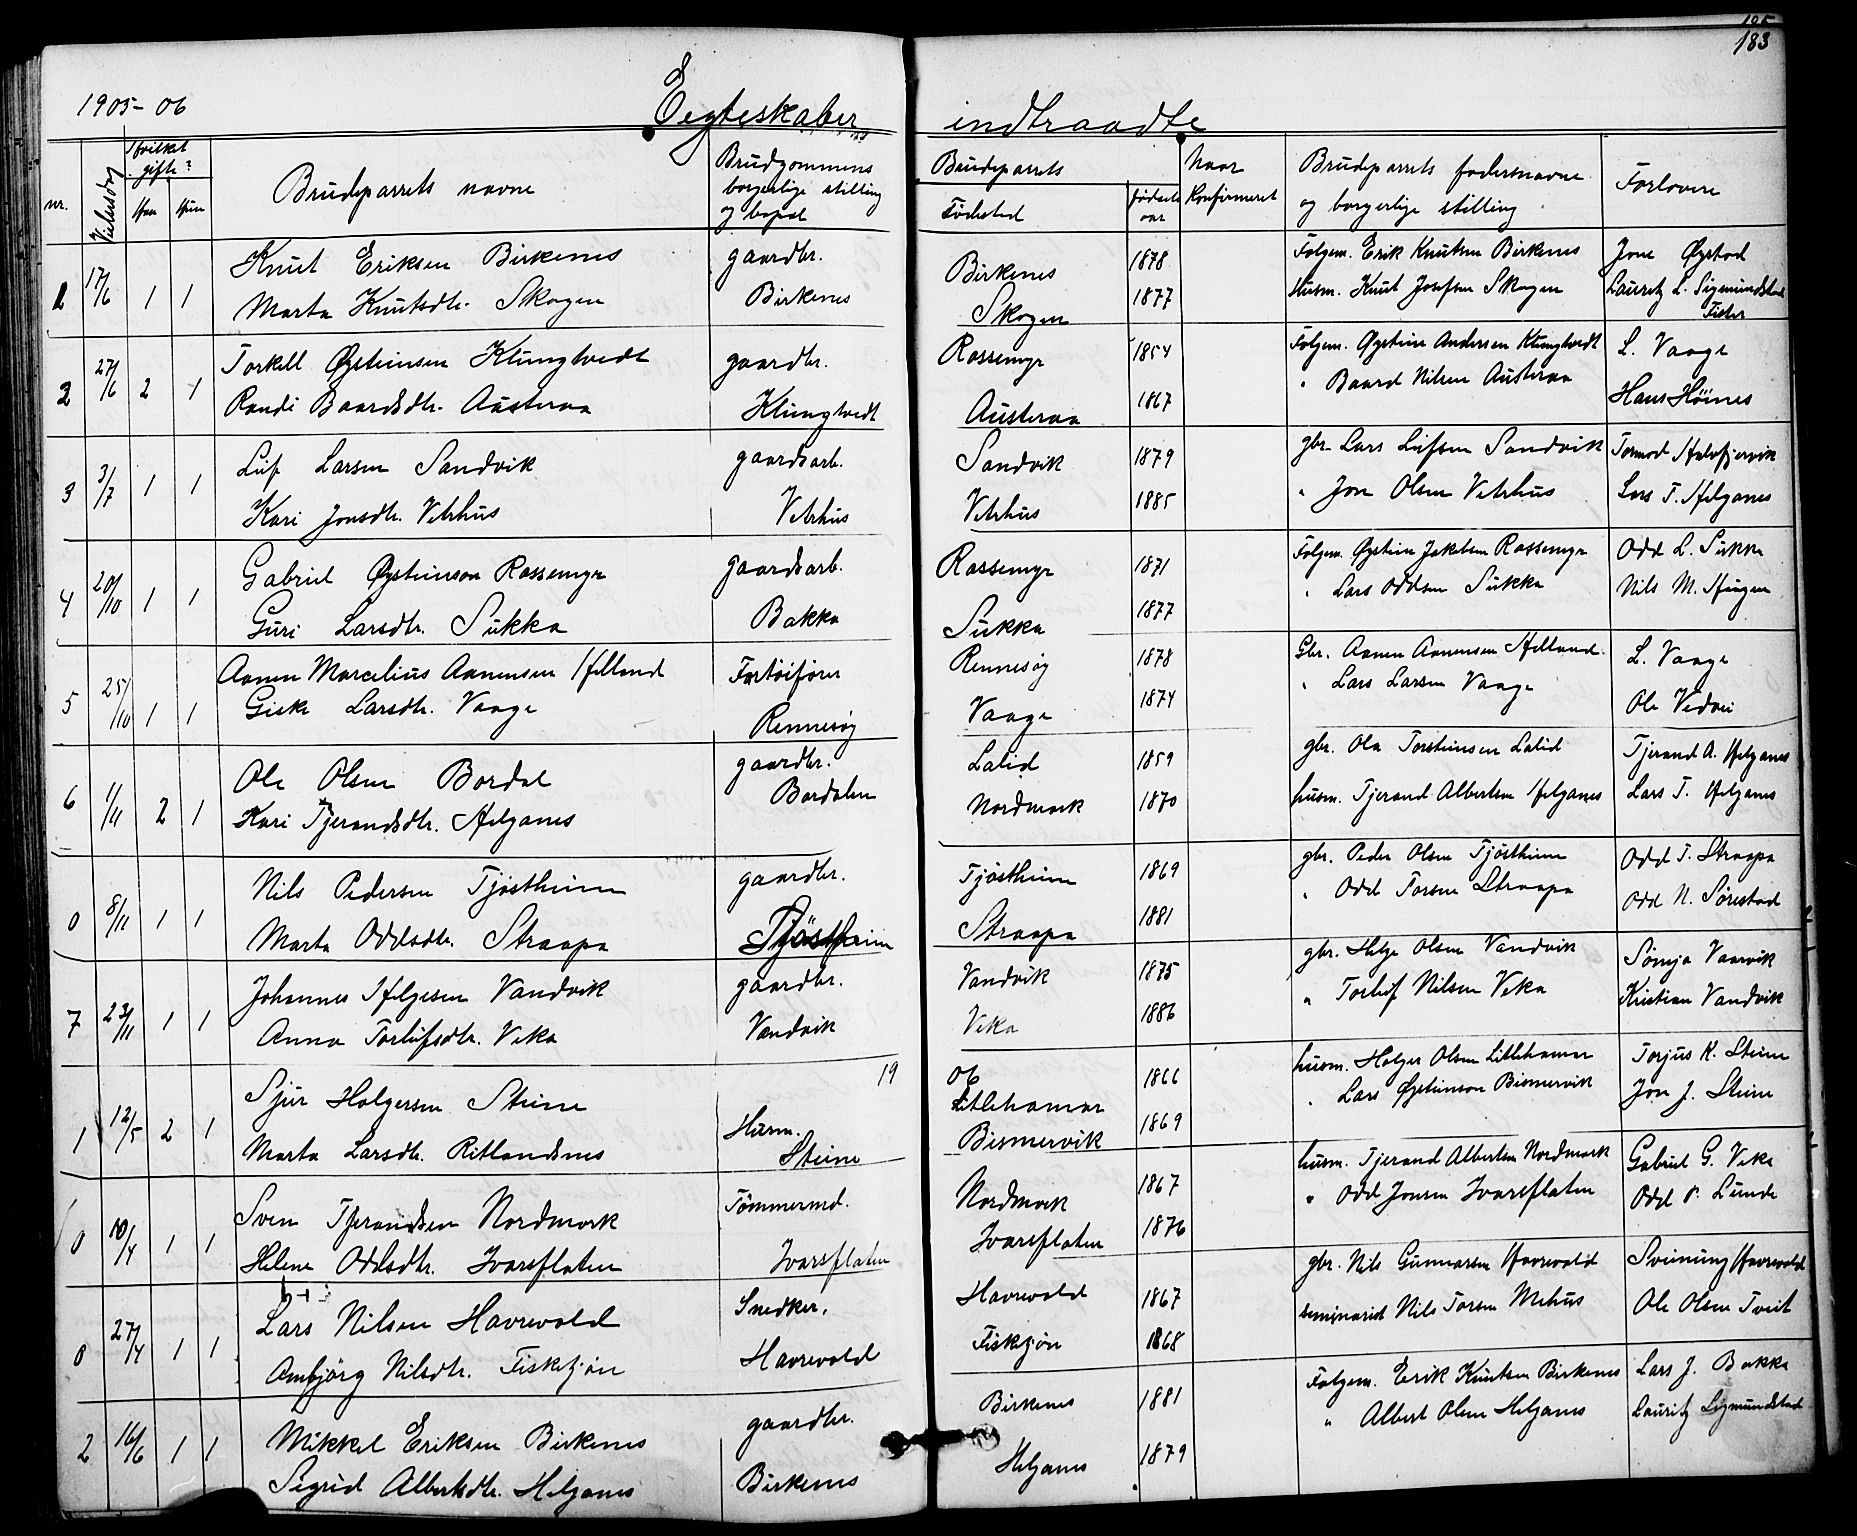 185
183
1905-06
Egteskaber
indtraadte
nr.
Vielsesdag
Hvilket gifte?
Han
Hun
Brudeparrets navne
Brudgommens borgerlige stilling og bopæl
Brudeparrets
Fødested
fødsels aar
Naar Konfirmeret
Brudeparrets fædernavne og borgerlige stilling
Forlovere
1 17/6 1 1 Knut Eriksen Birkenes gaardbr. Birkenes 1878 Folgem. Erik Knutsen Birkenes Jone Øystad
Marta Knutsdtr. Skogen Birkenes Skogen 1877 Husm. Knut Josefsen Skogen Lauritz L. Sigmundstad Fister
2 27/6 2 1 Torkell Øysteinsen Klungtvedt gaardbr. Rossemyr 1854 Folgem. Øystein Andersen Klungtvedt L. Vaage
Randi Baardsdtr. Austeraa Klungtvedt Austeraa 1867 " Baard Nilsen Austeraa Hans Höines
3 3/7 1 1 Leif Larsen Sandvik gaardsarb. Sandvik 1879 gbr. Lars Leifsen Sandvik Tormod
Kari Jonsdtr. Vetrhus Vetrhus Vetrhus 1885 " Jon Olsen Vetrhus Lars T. Helganes
4 20/10 1 1 Gabriel Øysteinson Rossemyr gaardsarb. Rossemyr 1871 Folgem. Øystein Jakobsen Rossemyr Odd L. Sukka
Guri Larsdtr. Sukka Bakka Sukka 1877 " Lars Oddsen Sukka Nils M.
5 25/10 1 1 Aanen Marcelius Aanensen Helland Fortöifører Rennesøy 1878 Gbr. Aanen Aanensen Helland. L. Vaage
Giske Larsdtr. Vaage Rennesøy Vaage 1874 " Lars Larsen Vaage Ole
6 1/11 2 1 Ole Olsen Bordal gaardbr. Lalid 1859 gbr. Ola Torsteinsen Lalid Tjerand A. Helganes
Kari Tjerandsdtr. Helganes Bordalen Nordmork 1870 husm. Tjerand Albertsen Helganes Lars T. Helganes
0 8/11 1 1 Nils Pedersen Tjöstheim gaardbr. Tjöstheim 1869 gbr. Peder Olsen Tjöstheim Odd T. Straapa
Marta Oddsdtr. Straapa Tjöstheim Straapa 1881 " Odd Torsen Straapa Odd N. Sørestad
7 23/11 1 1 Johannes Helgesen Vandvik gaardbr. Vandvik 1875 gbr. Helge Olsen Vandvik Vaarvik
Anna Torleifsdtr. Veka Vandvik Veka 1886 " Torleif Nilsen Veka Kristian Vandvik
19 06
1 12/5 2 1 Sjur Holgersen Steine Husm. Litlehamar 1866 husm. Holger Olsen Litlehamar Torjus K. Steine
Marta Larsdtr. Ritlandsnes Steine Bismervik 1869 " Lars Øysteinson Bismervik Jon J. Steine
0 10/4 1 1 Sven Tjerandsen Nordmork Tömmermd. Nordmork 1867 husm. Tjerand Albertsen Nordmork Gabriel G. Veka
Helene Oddsdtr. Ivarsflaten Ivarsflaten Ivarsflaten 1876 " Odd Jonsen Ivarsflaten Odd P. Lunde
0 27/4 1 1 Lars Nilsen Havrevold Snedker. Havrevold 1867 gbr. Nils Gunnarsen Havrevold Sveinung Havrevold
Ambjörg Nilsdtr. Fisketjön Havrevold Fisketjön 1868 seminarist Nils Torsen Mehus Ole Olsen Tveit
2 16/6 1 1 Mikkel Eriksen Birkenes gaardbr. Birkenes 1881 Folgem. Erik Knutsen Birkenes Lars J. Bakka
Sigrid Albertsdtr. Helganes Birkenes Helganes 1879 " Albert Olsen Helganes Lauritz Sigmundstad